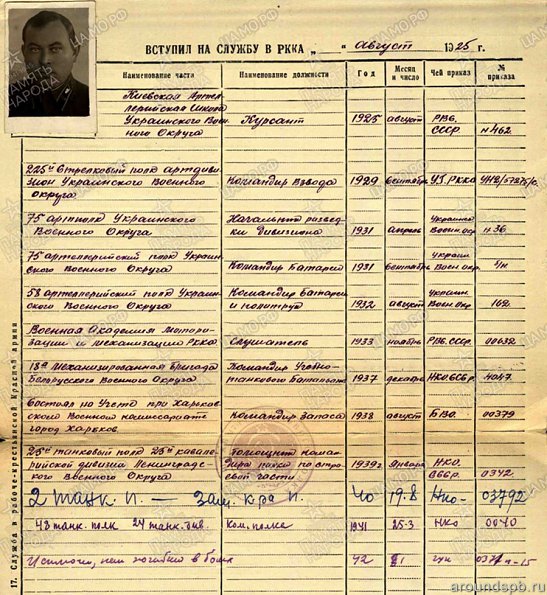 ВСТУПИЛ НА СЛУЖБУ В РККА „ “ август 1925 г.
Наименование части Наименование должности Год Месяц и число Чей приказ № приказа
Киевская Артил-
лерийская Школа
Украинского Воен- Курсант 1925 август РВС.
ного Округа СССР №462
225й Стрелковый полк артдиви-
зион Украинского Военного Командир Взвода 1929 сентябрь УП. РККА
Округа
75 артполк Украинского Начальник развед- Украинс.
Военного Округа ки дивизиона 1931 апрель Воен. окр. №36
75 артиллерийский полк Украин- Украин.
ского Военного Округа Командир Батареи 1931 сентябрь Воен. окр.
58 артиллерийский полк Украин- Командир батареи Украин
ского Военного Округа и политрук 1932 август Воен. окр. 162
Военная Академия Мотори-
зации и механизации РККА Слушатель 1933 ноябрь РВС. СССР. 00632
18я Механизированная бригада Командир Учебно-
Белорусского Военного Округа танкового Батальона 1937 декабрь НКО. СССР. 4047
Состоял на Учете при Харьков-
ского Военного Комиссариате Командир Запаса 1938 август БВО. 00379
город Харьков
25й танковый полк 25й кавале- Помощник коман-
рийской дивизии Ленинградс- дира полка по стро- 1939г. Января НКО.
кого Военного Округа евой части СССР. 0342
2 танк. п. — Зам. к-ра п. 40 19.8 НКО- 03792
48 танк. полк 24 танк. див. Ком. полка 1941 25-3 НКО 0040
Исключен, как погибший в боях 42 гук
17. Служба в рабоче-крестьянской Красной Армии
ЦАМО.РФ
ПАМЯТЬ НАРОДА
aroundspb.ru